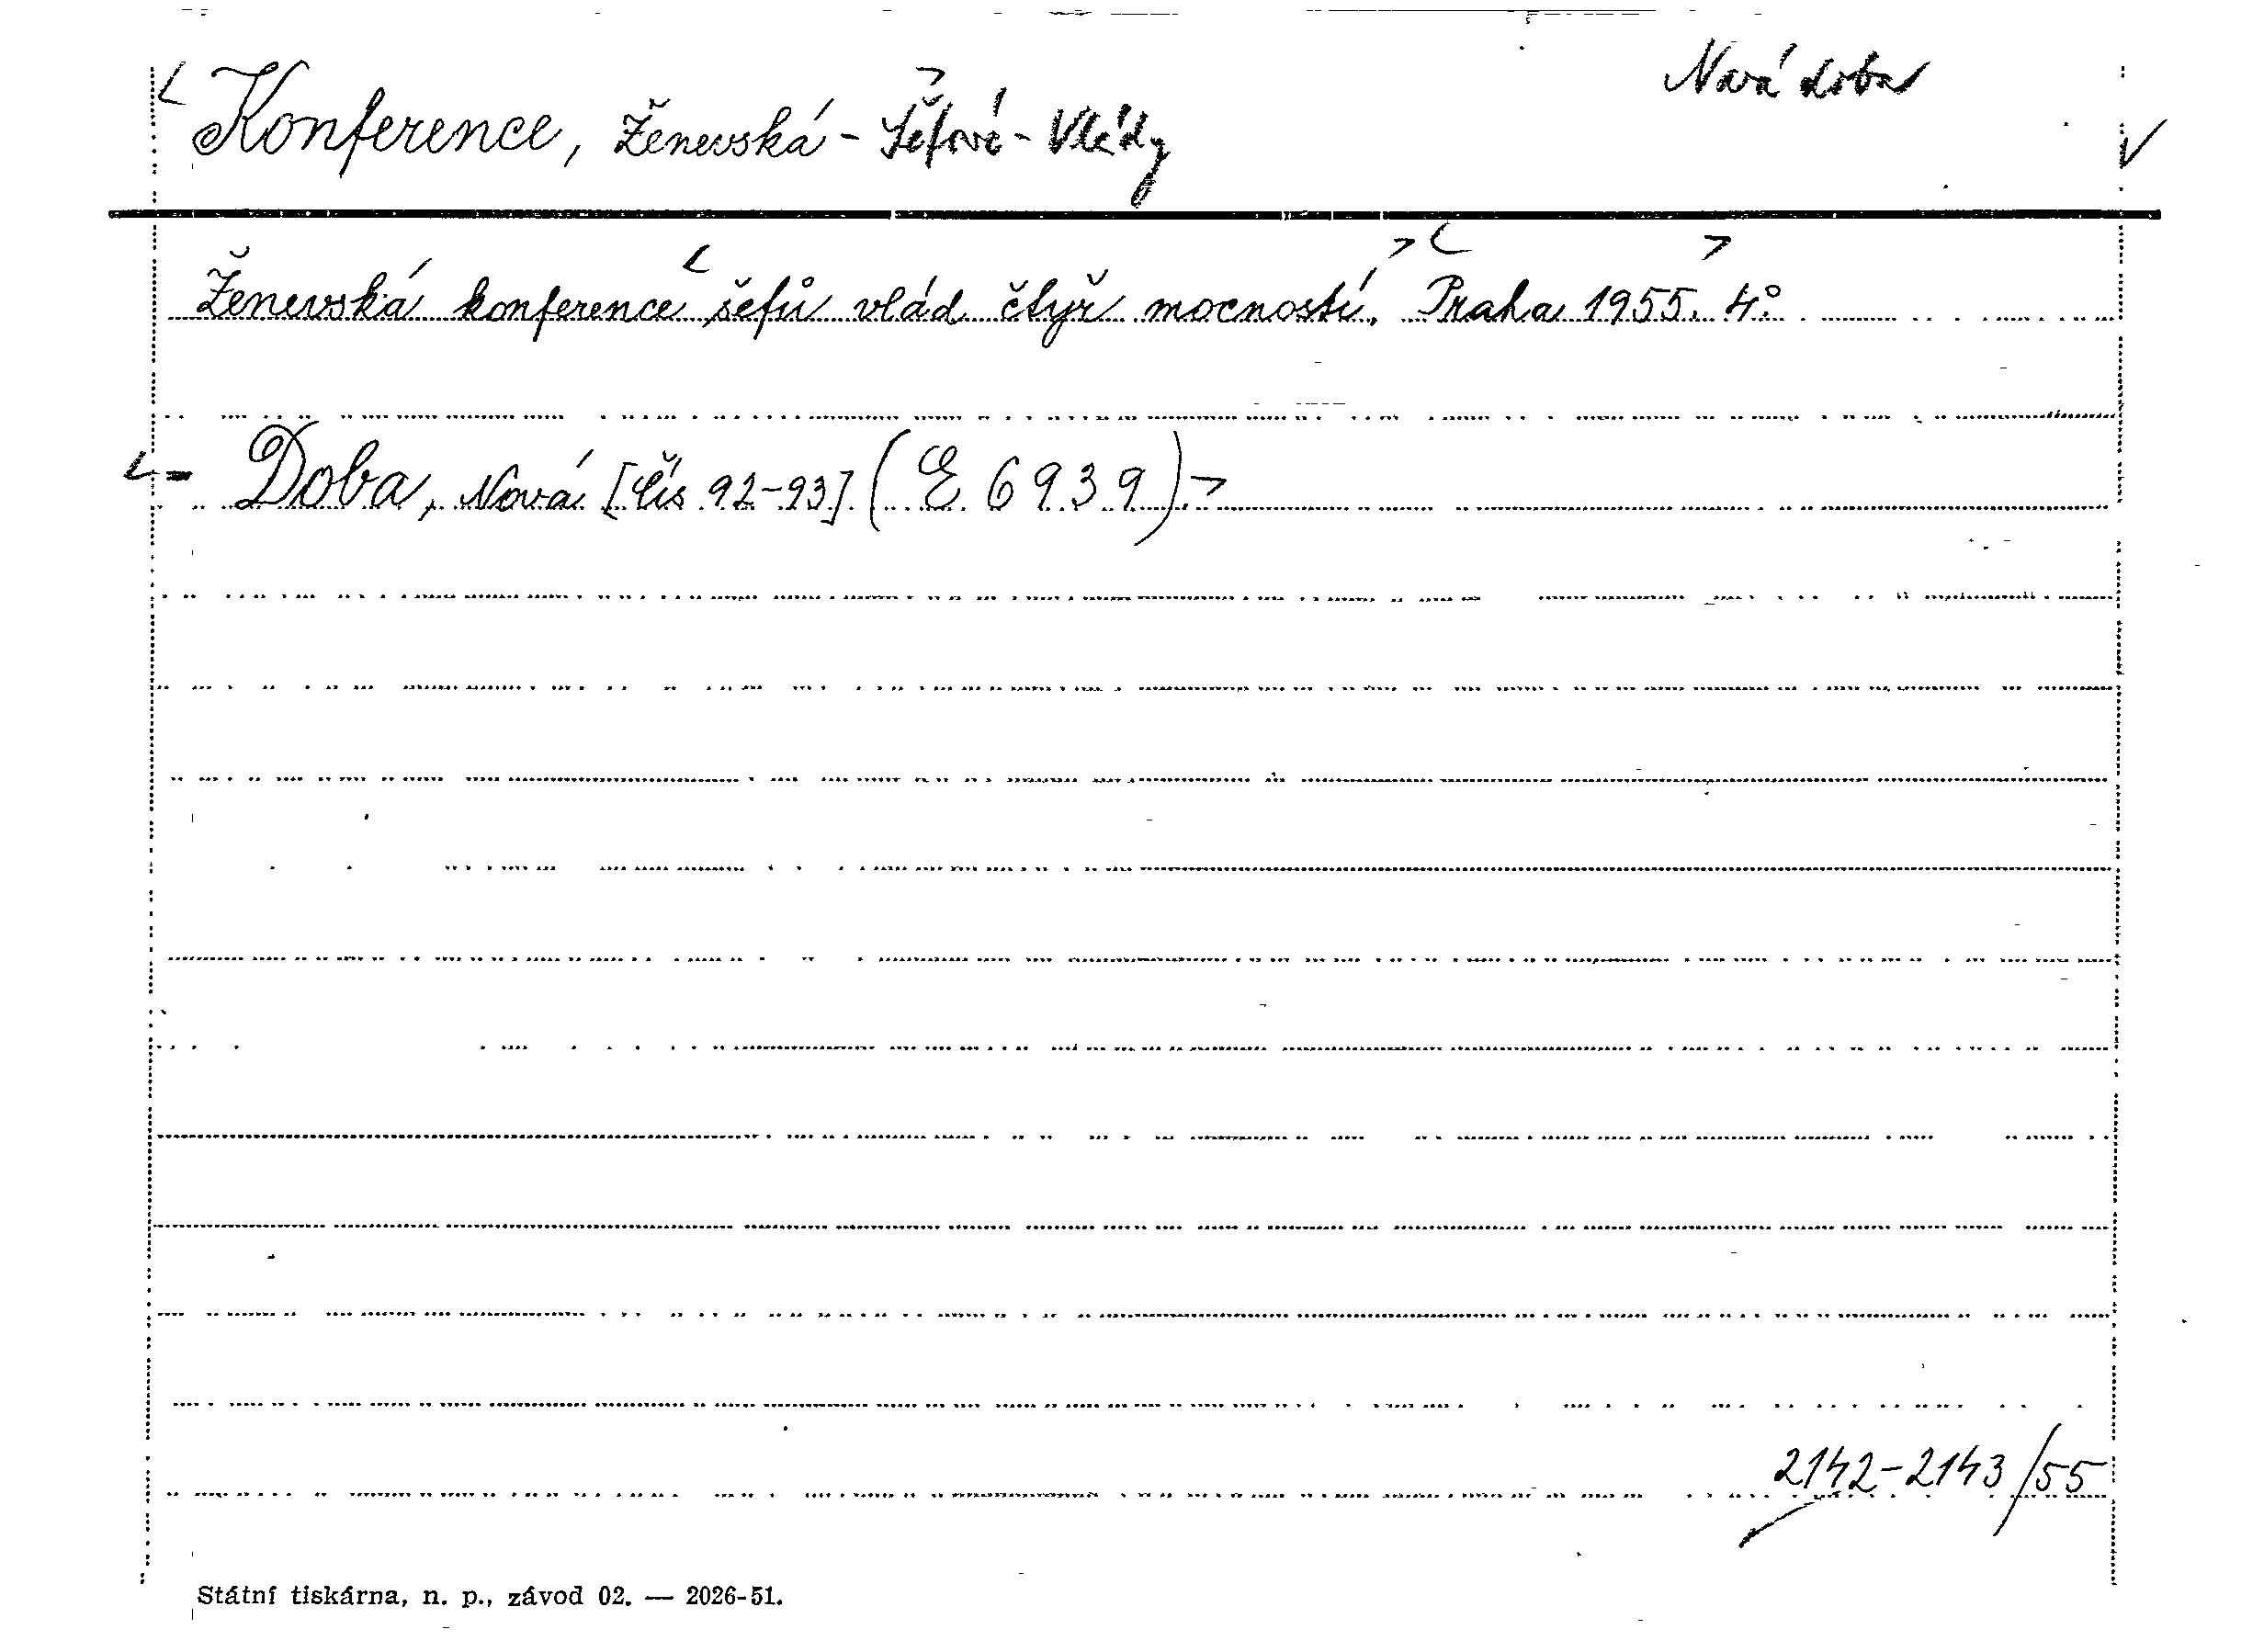 Nová doba
Konference, Ženevská - Šéfové - Vlády
Ženevská konference šéfů vlád čtyř mocností. Praha 1955. 4°.
- Doba, Nová [čís 92-93] (E 6939).
2142-2143/55
Státní tiskárna, n. p., závod 02. — 2026-51.